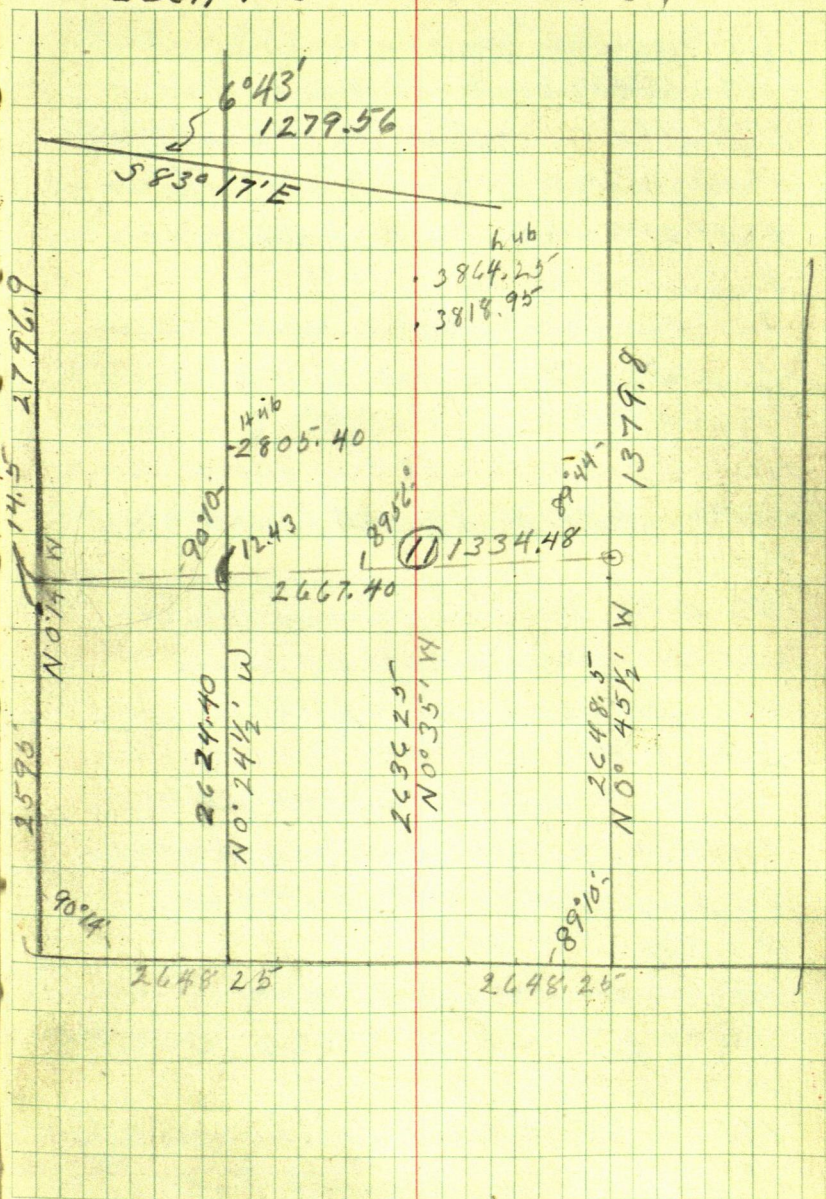 6°43'
1279.56
S 83° 17' E
hub
3864.25
3818.95
2796.9
1379.8
Hub
2805.40
14.5
90°10'
12.43
89°44'
11
1334.48
2667.40
N 0°14' W
2595
2624.40
N 0° 24 1/2' W
2636 25
N 0° 35' W
2648.5
N 0° 45 1/2' W
90°14'
89°10'
2648 25
2648.25